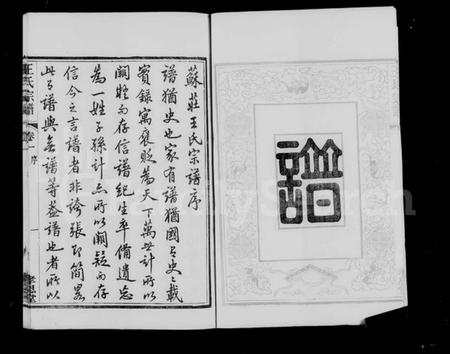 譜
蘇莊王氏宗譜序
譜猶史也家有譜猶國有史史之載
實錄寓褒貶為天下萬世計所以
闕疑而存信譜紀生卒備遺忘
為一姓子孫計亦所以闕疑而存
信今之言譜者非誇張即簡略
此與無譜等蓋譜也者所以
王氏宗譜
卷一 序